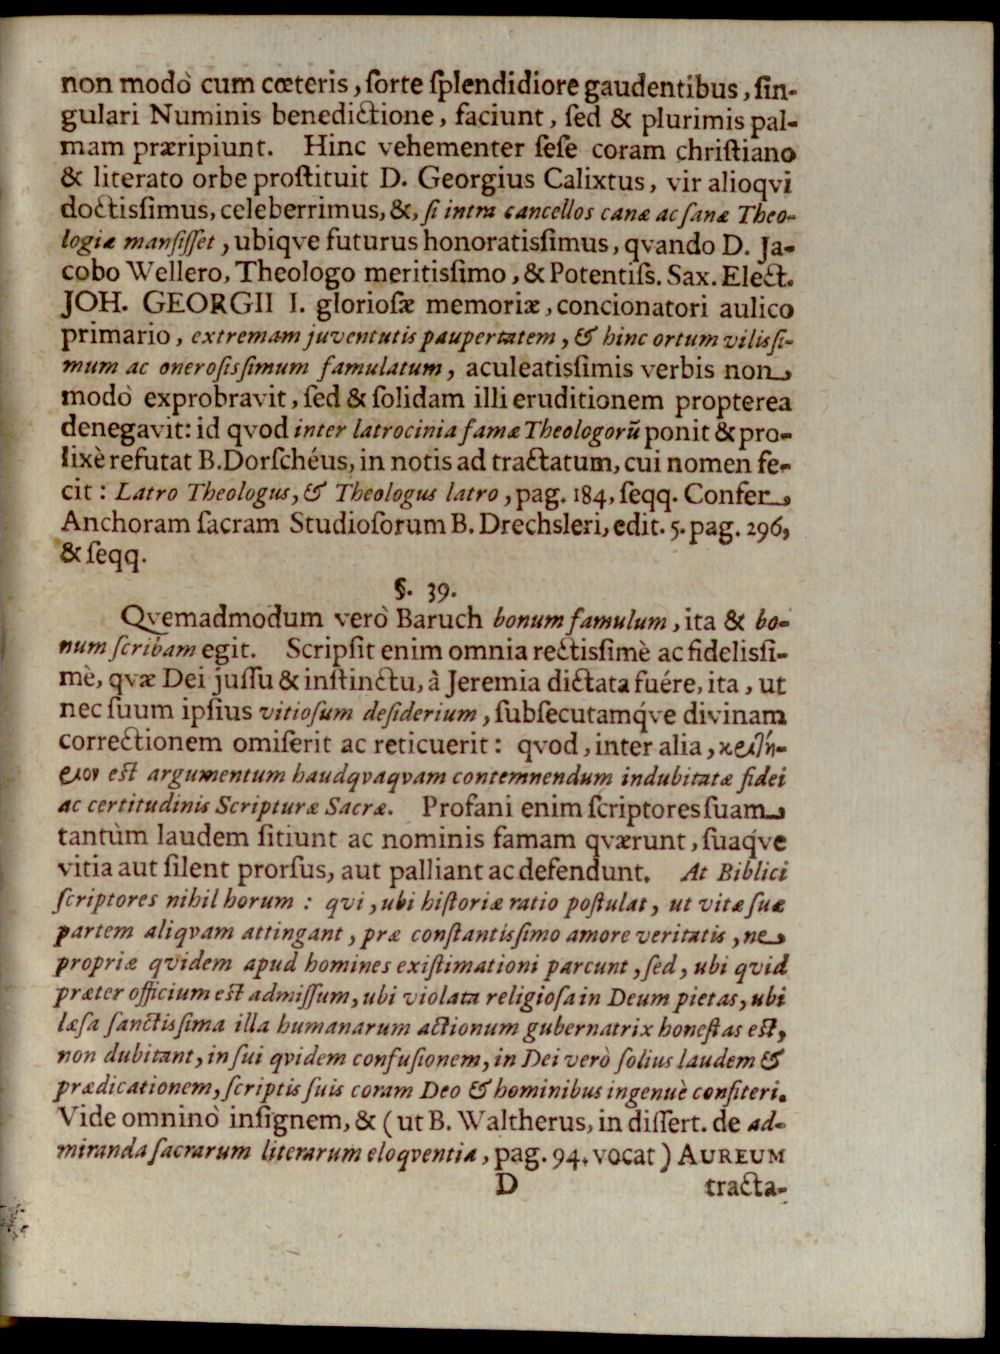 non modò cum cœteris, ſorte ſplendidiore gaudentibus, ſin-
gulari Numinis benedictione, faciunt, ſed & plurimis pal-
mam præripiunt. Hinc vehementer ſeſe coram chriſtiano
& literato orbe proſtituit D. Georgius Calixtus, vir alioqvi
doctisſimus, celeberrimus, &, ſi intra cancellos canæ ac ſanæ Theo-
logiæ manſiſſet, ubiqve futurus honoratisſimus, qvando D. Ja-
cobo Wellero, Theologo meritisſimo, & Potentiſs. Sax. Elect.
JOH. GEORGII I. glorioſæ memoriæ, concionatori aulico
primario, extremam juventutis paupertatem, & hinc ortum vilisſi-
mum ac oneroſisſimum famulatum, aculeatisſimis verbis non
modò exprobravit, ſed & ſolidam illi eruditionem propterea
denegavit: id qvod inter latrocinia famæ Theologorũ ponit & pro-
lixè refutat B. Dorſchéus, in notis ad tractatum, cui nomen fe-
cit: Latro Theologus, & Theologus latro, pag. 184, ſeqq. Confer
Anchoram ſacram Studioſorum B. Drechsleri, edit. 5. pag. 296,
& ſeqq.
§. 39.
Qvemadmodum verò Baruch bonum famulum, ita & bo-
num ſcribam egit. Scripſit enim omnia rectisſimè ac fidelisſi-
mè, qvæ Dei juſſu & inſtinctu, à Jeremia dictata fuére, ita, ut
nec ſuum ipſius vitioſum deſiderium, ſubſecutamq́ve divinam
correctionem omiſerit ac reticuerit: qvod, inter alia, κειλή-
ριον eſt argumentum haudqvaqvam contemnendum indubitatæ fidei
ac certitudinis Scripturæ Sacræ. Profani enim ſcriptores ſuam
tantùm laudem ſitiunt ac nominis famam qværunt, ſuaq́ve
vitia aut ſilent prorſus, aut palliant ac defendunt. At Biblici
ſcriptores nihil horum: qvi, ubi hiſtoriæ ratio poſtulat, ut vitæ ſuæ
partem aliqvam attingant, præ conſtantisſimo amore veritatis, ne
propriæ qvidem apud homines exiſtimationi parcunt, ſed, ubi qvid
præter officium eſt admiſſum, ubi violata religioſa in Deum pietas, ubi
læſa ſanctisſima illa humanarum actionum gubernatrix honeſtas eſt,
non dubitant, in ſui qvidem confuſionem, in Dei verò ſolius laudem &
prædicationem, ſcriptis ſuis coram Deo & hominibus ingenuè confiteri.
Vide omninò inſignem, & (ut B. Waltherus, in diſſert. de ad-
miranda ſacrarum literarum eloqventia, pag. 94. vocat) AUREUM
D tracta-